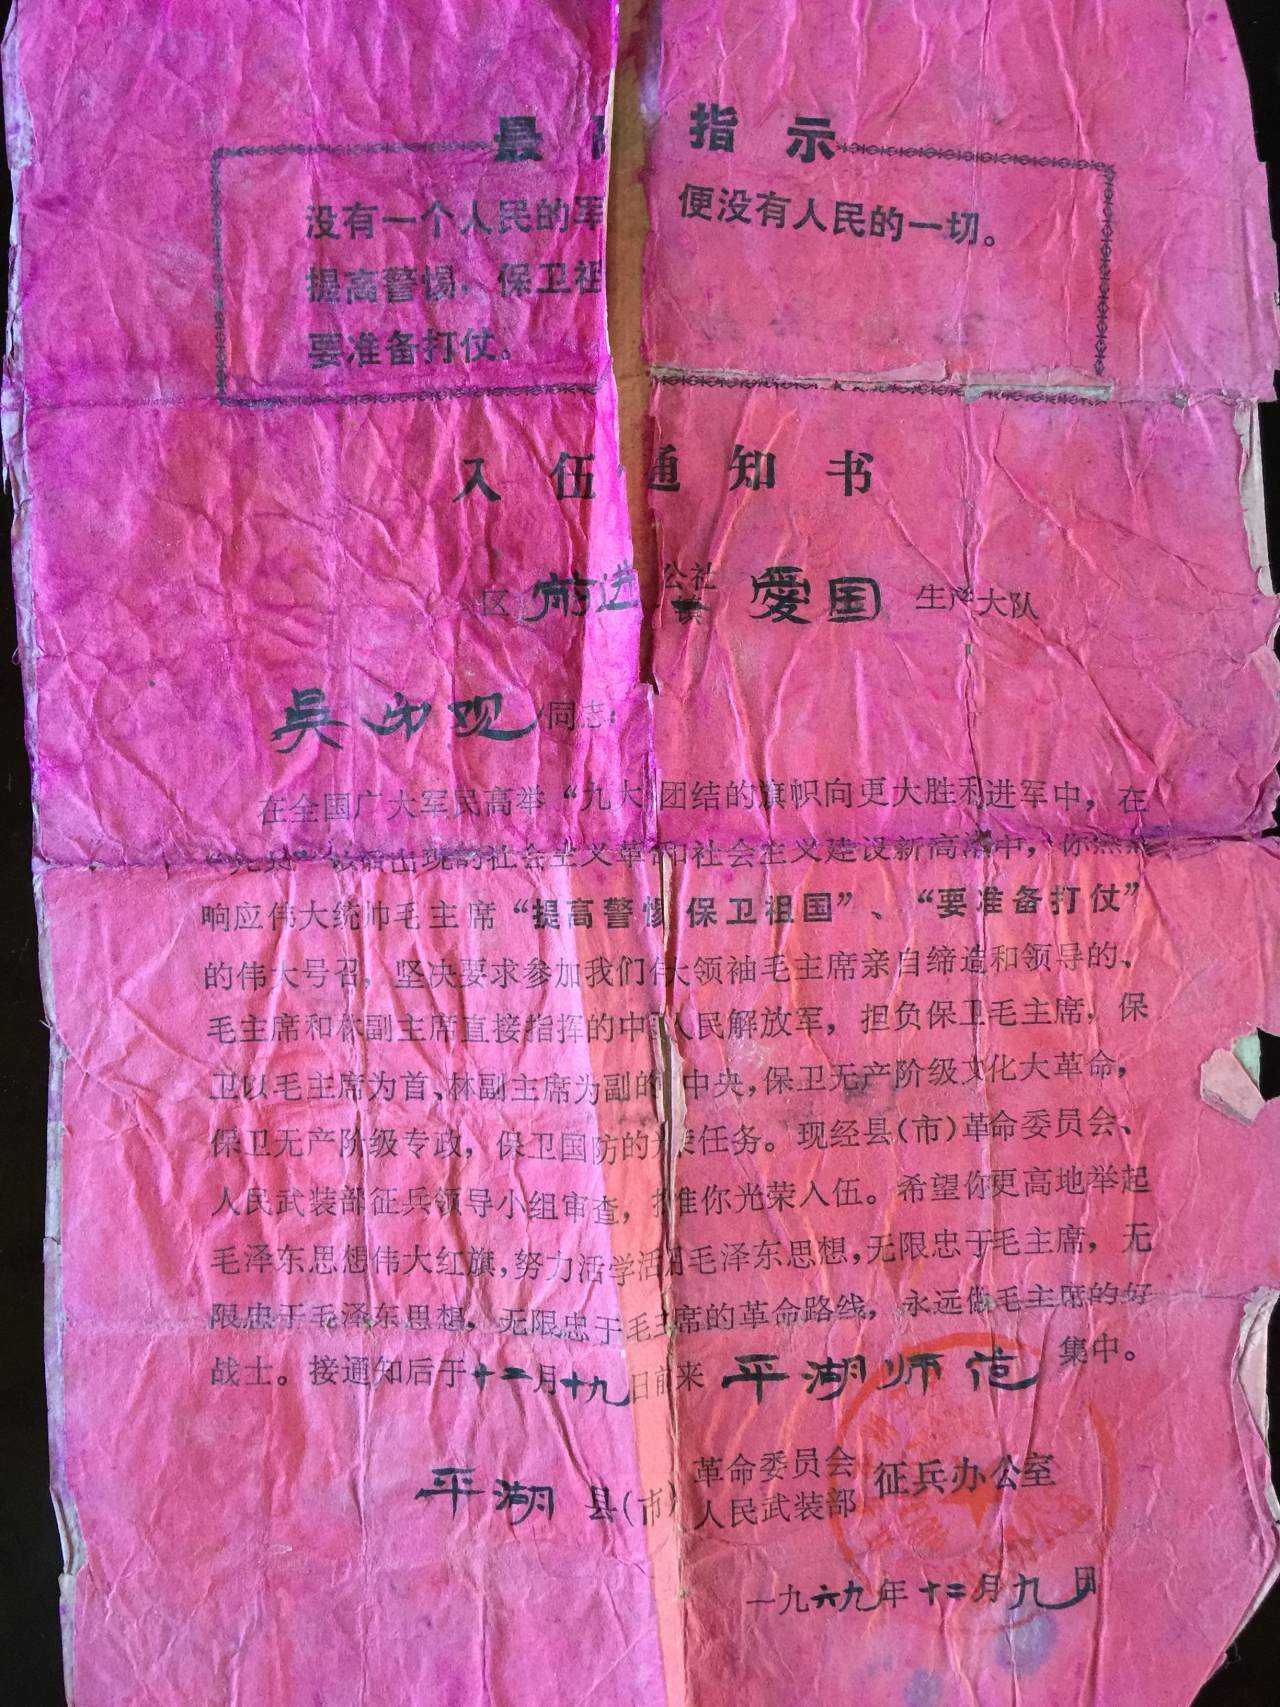 最 指 示
没有一个人民的军 便没有人民的一切。
提高警惕，保卫祖
要准备打仗。
入 伍 通 知 书
区 前进 公社 爱国 生产大队
镇
吴 观 同志：
在全国广大军民高举“九大 团结的旗帜向更大胜利进军中，在
社会主义革 和社会主义建设新高潮中，你
响应伟大统帅毛主席“提高警惕 保卫祖国”、“要准备打仗”
的伟大号召，坚决要求参加我们伟大领袖毛主席亲自缔造和领导的、
毛主席和林副主席直接指挥的中 人民解放军，担负保卫毛主席，保
卫以毛主席为首、林副主席为副的 中央，保卫无产阶级文化大革命，
保卫无产阶级专政，保卫国防的光荣任务。现经县（市）革命委员会、
人民武装部征兵领导小组审查， 准你光荣入伍。希望你更高地举起
毛泽东思想伟大红旗，努力活学活用毛泽东思想，无限忠于毛主席，无
限忠于毛泽东思想，无限忠于毛主席的革命路线，永远做毛主席的好
战士。接通知后于十二月十九日前来 平湖师范 集中。
平湖 县（市） 革命委员会 征兵办公室
人民武装部
一九六九年十二月九日